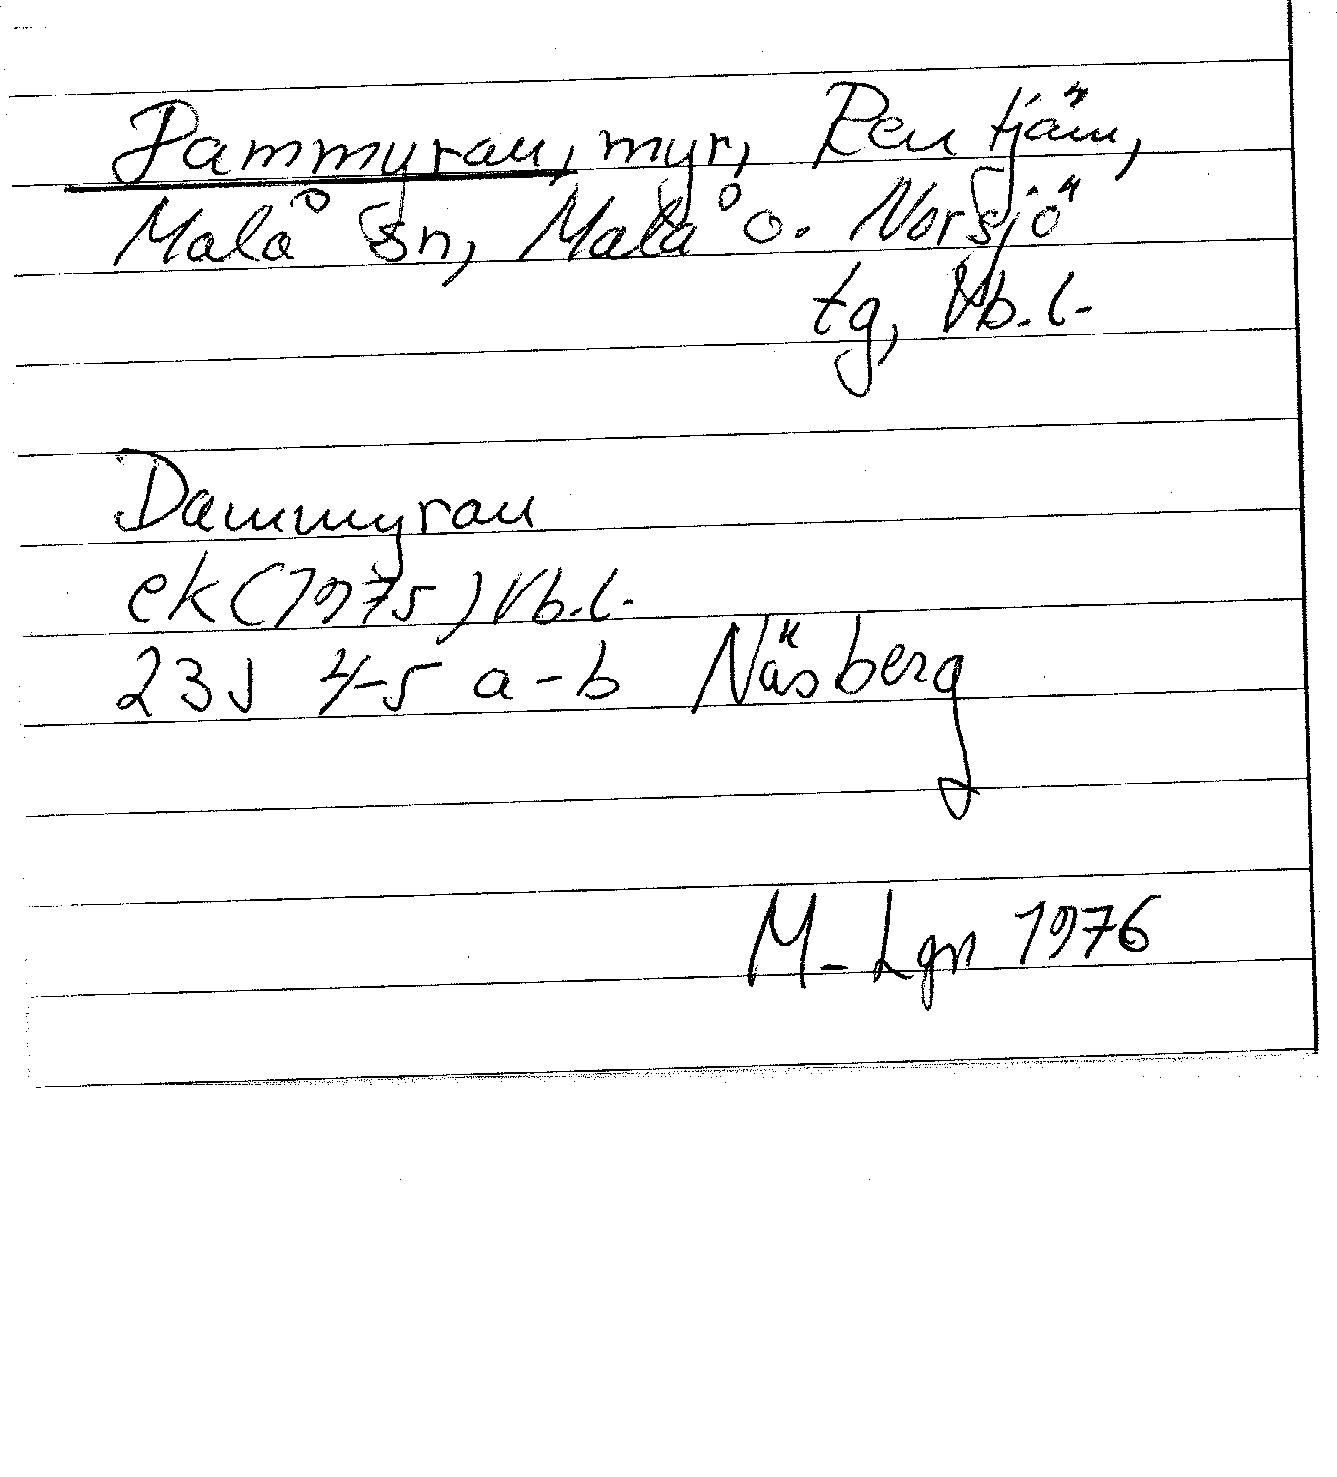 Dammyran, myr, Rentjärn,
Malå sn, Malå o. Norsjö
tg, Vb.l.
Dammyran
ek (1975) Vb.l.
23J 4-5 a-b Näsberg
M-Lgn 1976